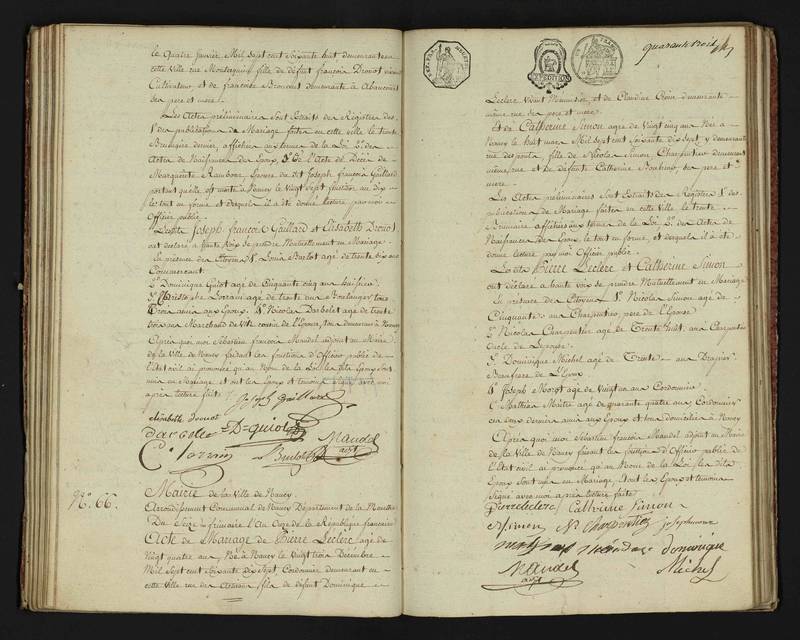 le quatre Janvier Mil sept cent soixante huit demeurante en
cette ville rue Montesquieu fille de défunt françois Drouot vivant
Cultivateur et de francoise demeurante à
ses pere et mere.
Les Actes préliminaires sont Extraits des Registres des
1° des publications de Mariage faites en cette ville le trente
Brumaire dernier, affichées aux termes de la Loi 2° des
Actes de Naissances des Epoux, 3° de l'Acte de Décès de
Marguerite Epouse du dit Joseph françois Gaillard
portant qu'elle est morte à Nancy le Vingt Sept an dix
le tout en forme et desquels il a été donné lecture par moi
Officier public.
Lesdits Joseph françois Gaillard et Elisabeth Drouot
ont déclaré à haute voix se prendre Mutuellement en Mariage
En présence des Citoyens 1° Louis Barbot agé de trente six ans
Commerçant.
2° Dominique Guiot agé de Cinquante cinq ans huissier.
3° Christophe Lorrain agé de trente ans Boulanger tous
trois amis aux Epoux. 4° Nicolas agé de trente
trois ans Marchand de Ville cousin de l'Epouse, tous demeurant à Nancy
Après quoi moi Sébastien françois Mandel adjoint au Maire
de la Ville de Nancy faisant les fonctions d'Officier public de
l'état civil ai prononcé qu'au Nom de la Loi les dits Epoux sont
unis en Mariage et ont les Epoux et temoins signé avec moi
après lecture faite
Joseph Gaillard
elisabeth Drouot
D Guiot
Mandel
adjt
C. Lorrain
N°. 66.
Mairie de la Ville de Nancy
Arrondissement Communal de Nancy Département de la Meurthe
Du Seize frimaire l'An Onze de la République française
Acte de Mariage de Pierre Leclere agé de
Vingt quatre ans Né à Nancy le Vingt trois Décembre
Mil Sept cent Soixante dix Sept Cordonnier demeurant en
cette Ville rue des Artisans fils de défunt Dominique
quarante trois
Leclere vivant Manouvrier et de Claudine demeurante
même rue ses pere et mere
Et de Catherine Simon agée de Vingt cinq ans Née à
Nancy le huit Mai Mil Sept cent Soixante dix Sept y demeurante
rue des fille de Nicolas Simon Charpentier demeurant
même rue et de défunte Catherine ses pere et
mere.
Les Actes préliminaires sont Extraits des Registres 1° des
publications de Mariage faites en cette Ville le trente
Brumaire affichées aux termes de la Loi 2° des Actes de
Naissances des Epoux, le tout en forme, et desquels il a été
donné lecture par moi Officier public.
Lesdits Pierre Leclere et Catherine Simon
ont déclaré à haute voix se prendre Mutuellement en Mariage
En présence des Citoyens 1° Nicolas Simon agé de
Cinquante ans Charpentier, pere de l'Epouse
2° Nicolas Charpentier agé de Trente huit ans Charpentier
Oncle de l'épouse.
3° Dominique Michel agé de Trente ans Drapier
Beaufrere de l'Epoux
4° Joseph Morot agé de Vingt un ans Cordonnier
Mathias Maitre agé de quarante quatre ans Cordonnier
ces deux derniers amis aux Epoux et tous domiciliés à Nancy
Après quoi moi Sébastien francois Mandel adjoint au Maire
de la Ville de Nancy faisant les fonctions d'Officier public de
l'état civil ai prononcé qu'au Nom de la Loi les dits
Epoux sont unis en Mariage, et ont les Epoux et temoins
Signé avec moi après lecture faite
Pierre leclerc Catherine Simon
N Simon N Charpentier joseph morot
Dominique
Mandel
adjt
Michel